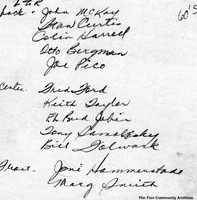 L to R
60's
Back - John McKay
Stan Curtis
Colin Harrell
Otto Bergman
Joe Pico
Center. Fred Ford
Keith Taylor
Bud Jobin
Tony
Bill
Front. Joni Hammerstad
Marg Smith
Flin Flon Community Archives